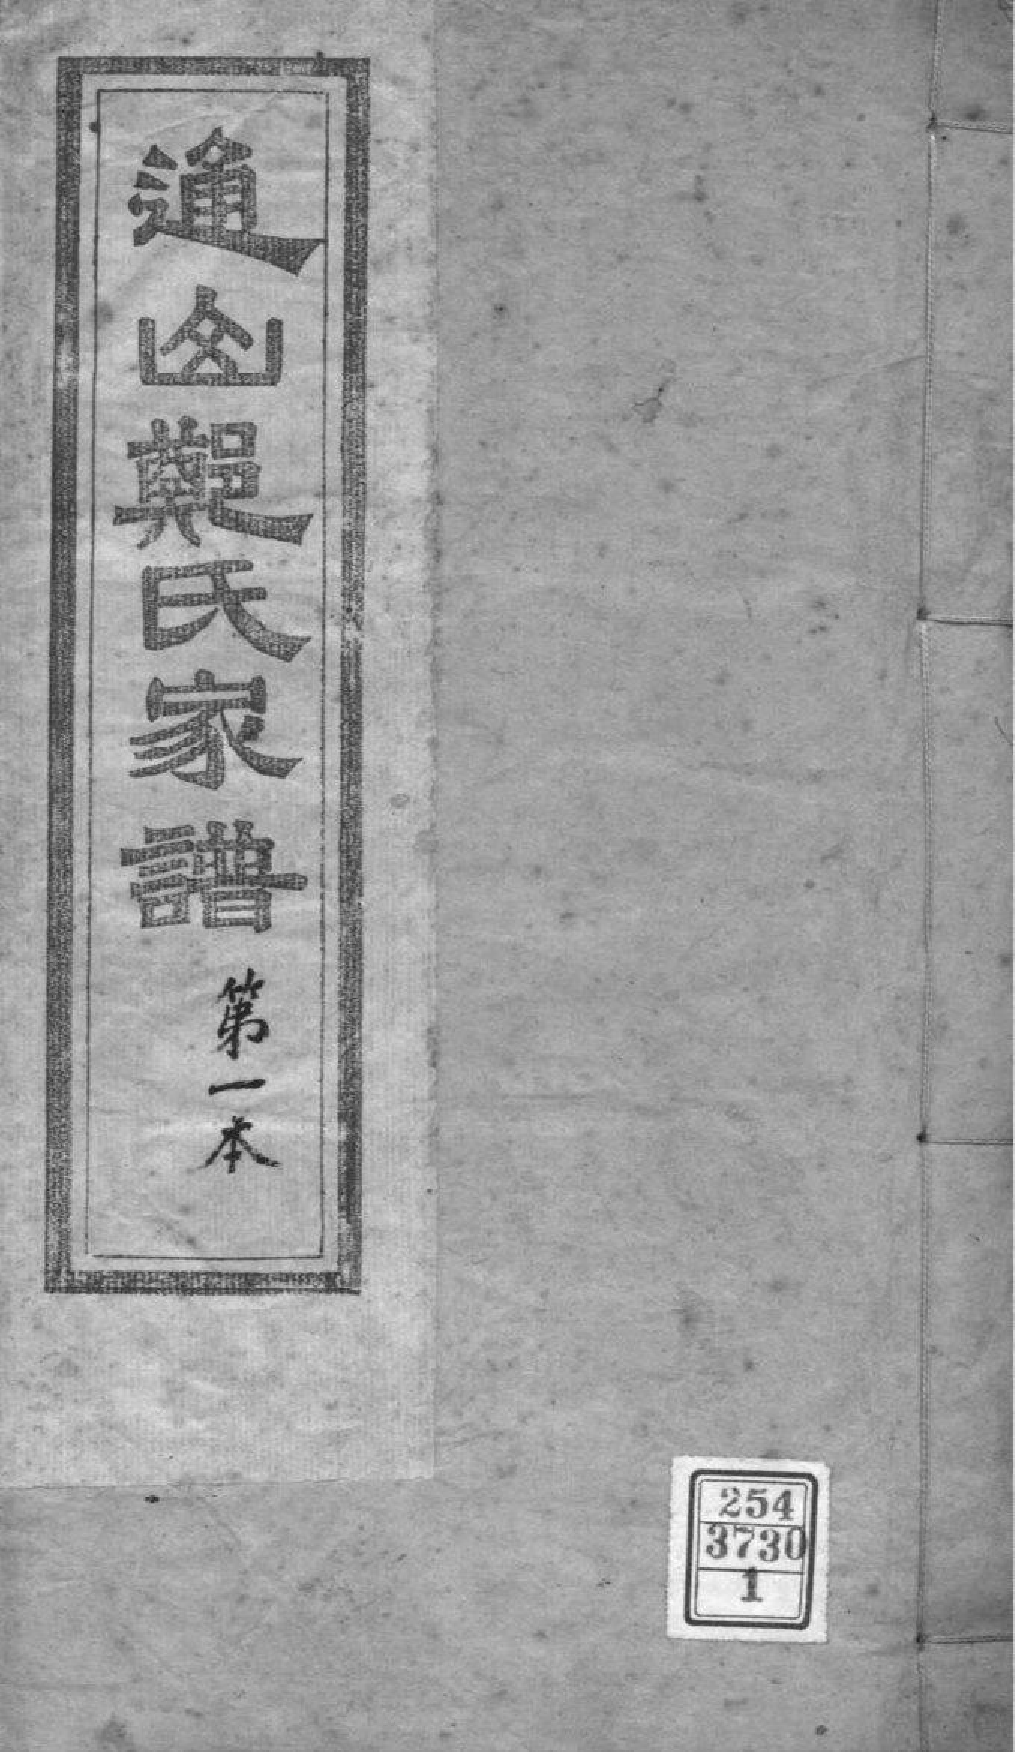 通山鄭氏家譜
第一本
254
3730
1